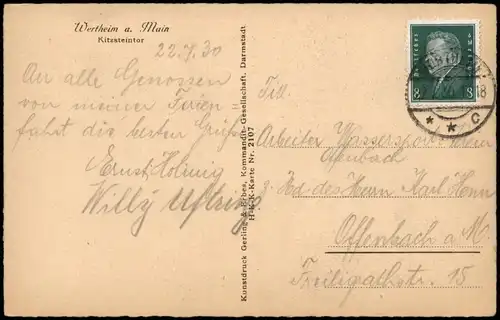 Wertheim a. Main
Kitzsteintor
22.7.30
An alle Genossen
von meiner Ferien=
fahrt die besten Grüße
Ernst
Willy
Kunstdruck Gerling & Erbes, Kommandit-Gesellschaft, Darmstadt
H-K-K-Karte Nr. 2107
8 8
18
* * C
Tit.
Arbeiter Wassersportverein
Offenbach
z. Hd des Herrn Karl Henn
Offenbach a M
Freiligrathstr. 15